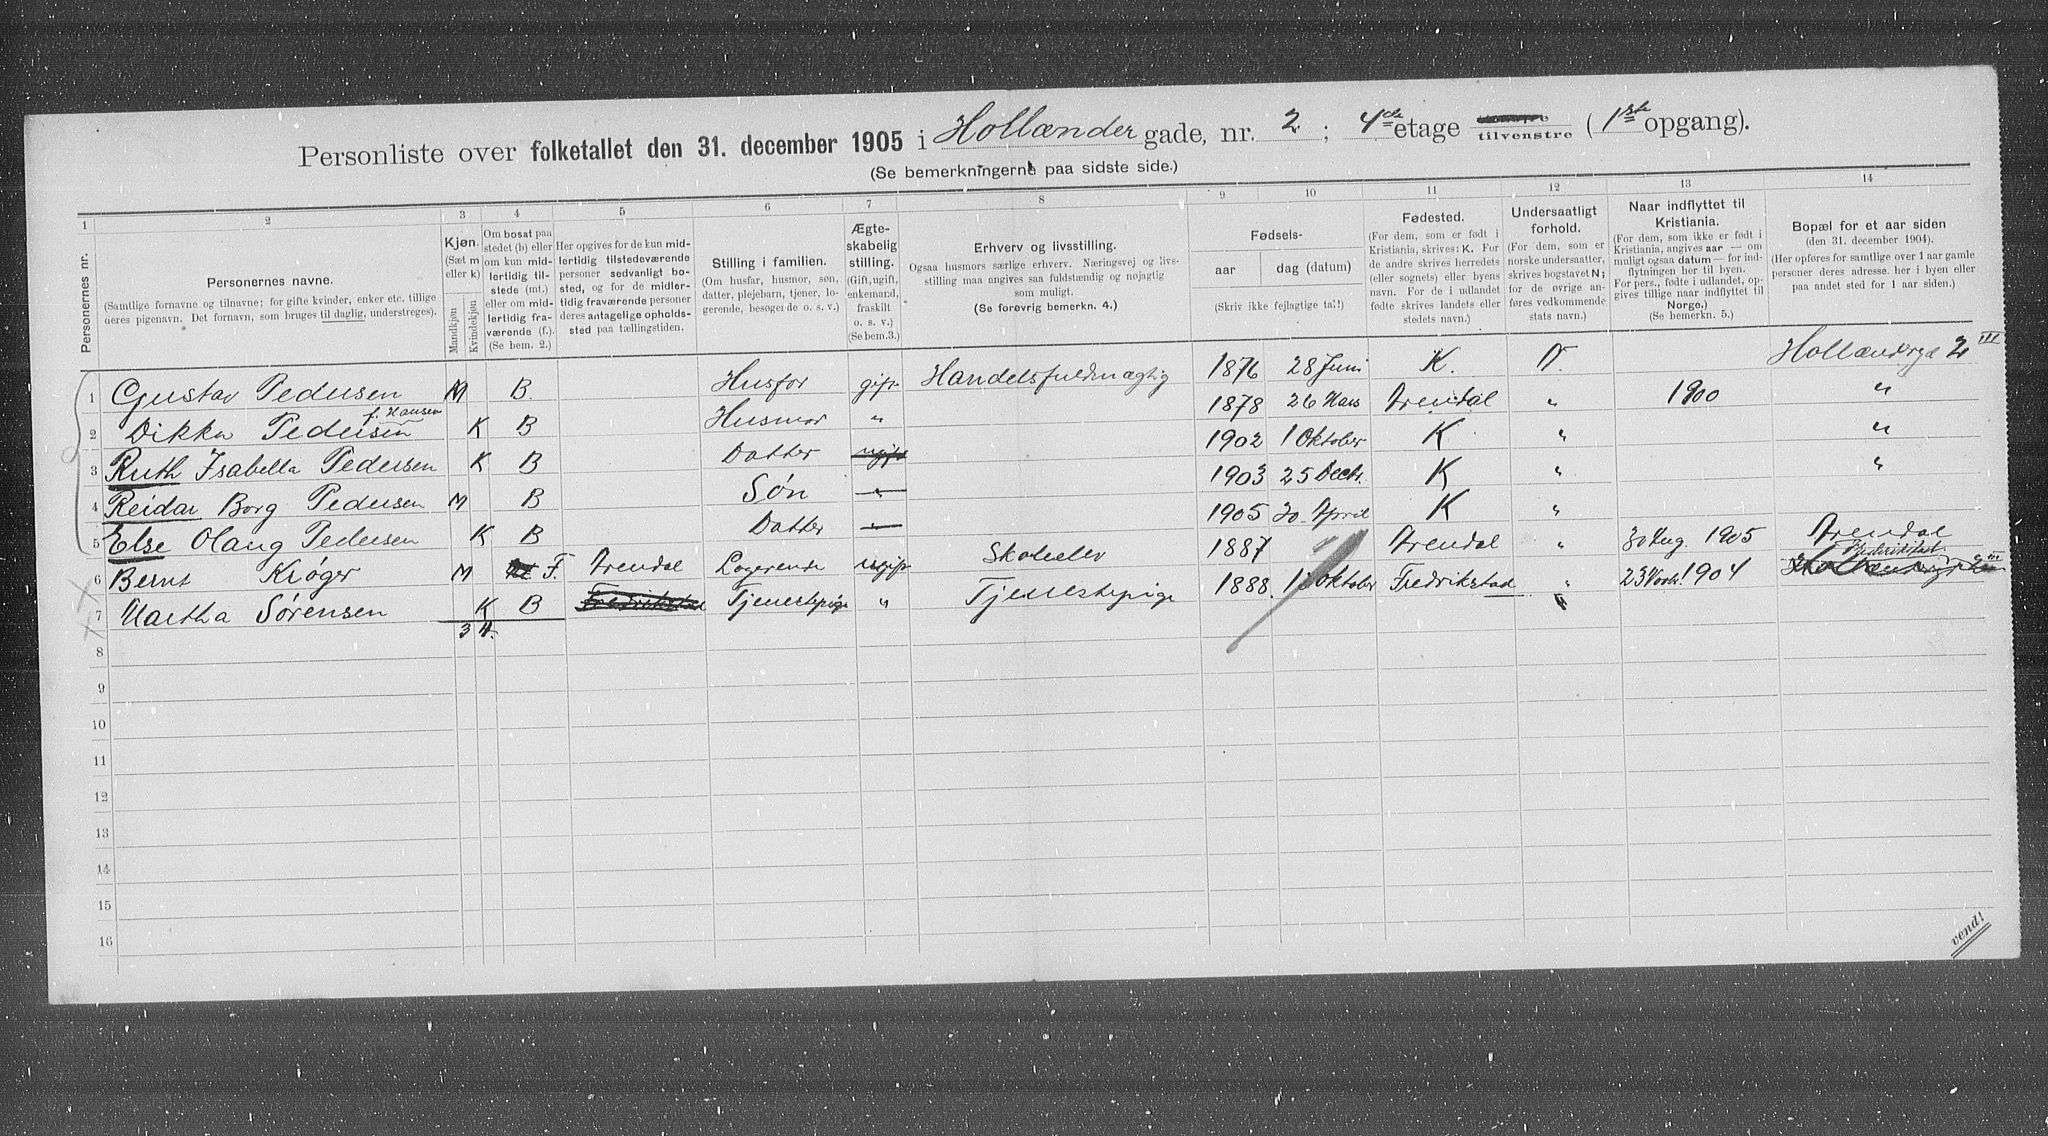 Personliste over folketallet den 31. december 1905 i Hollænder gade, nr. 2 ; 4de etage tilvenstre (1ste opgang).
(Se bemerkningerne paa sidste side.)
1 2 3 4 5 6 7 8 9 10 11 12 13 14
Personernes nr.
Personernes navne.
(Samtlige fornavne og tilnavne; for gifte kvinder, enker etc. tillige
deres pigenavn. Det fornavn, som bruges til daglig, understreges).
Kjøn.
(Sæt m
eller k)
Mandkjøn
Kvindekjøn
Om bosat paa
stedet (b) eller
om kun mid-
lertidig til-
stede (mt.)
eller om mid-
lertidig fra-
værende (f.).
(Se bem. 2.)
Her opgives for de kun mid-
lertidig tilstedeværende
personer sedvanligt bo-
sted, og for de midler-
tidig fraværende personer
deres antagelige opholds-
sted paa tællingstiden.
Stilling i familien.
(Om husfar, husmor, søn,
datter, plejebarn, tjener, lo-
gerende, besøgende o. s. v.)
Ægte-
skabelig
stilling.
(Gift, ugift,
enkemand,
fraskilt
o. s. v.)
(Se bem. 3.)
Erhverv og livsstilling.
Ogsaa husmors særlige erhverv. Næringsvej og livs-
stilling maa angives saa fuldstændig og nøjagtig
som muligt.
(Se forøvrig bemerkn. 4.)
Fødsels-
aar dag (datum)
(Skriv ikke fejlagtige tal!)
Fødested.
(For dem, som er født i
Kristiania, skrives: K. For
de andre skrives herredets
(eller sognets) eller byens
navn. For de i udlandet
fødte skrives landets eller
stedets navn.)
Undersaatligt
forhold.
(For dem, som er
norske undersaatter,
skrives bogstavet N;
for de øvrige an-
føres vedkommende
stats navn.)
Naar indflyttet til
Kristiania.
(For dem, som ikke er født i
Kristiania, angives aar — om
muligt ogsaa datum — for ind-
flytningen her til byen.
For pers., fødte i udlandet, op-
gives tillige naar indflyttet til
Norge.)
(Se bemerkn. 5.)
Bopæl for et aar siden
(den 31. december 1904).
(Her opføres for samtlige over 1 aar gamle
personer deres adresse her i byen eller
paa andet sted for 1 aar siden.)
1 Gustav Pedersen M B. Husfar gift Handelsfuldmægtig 1876 28 Juni K. N. Hollændergd 2 III
f. Hansen
2 Dikka Pedersen K B Husmor " 1878 26 Mars Arendal " 1900 "
3 Ruth Isabella Pedersen K B Datter ugift 1902 1 Oktober K " "
4 Reidar Borg Pedersen M B Søn " 1903 25 Decbr. K " "
5 Else Olaug Pedersen K B Datter " 1905 30 April K "
6 Bernt Krøger M F. Arendal Logerende ugift Skoleelev 1887 Arendal " 30 Aug. 1905 Arendal
7 Martha Sørensen K B Fredrikstad Tjenestepige " Tjenestepige 1888. 1 Oktober Fredrikstad " 23 Novbr. 1904 Fredrikstad
3 4.
8
9
10
11
12
13
14
15
16
vend!